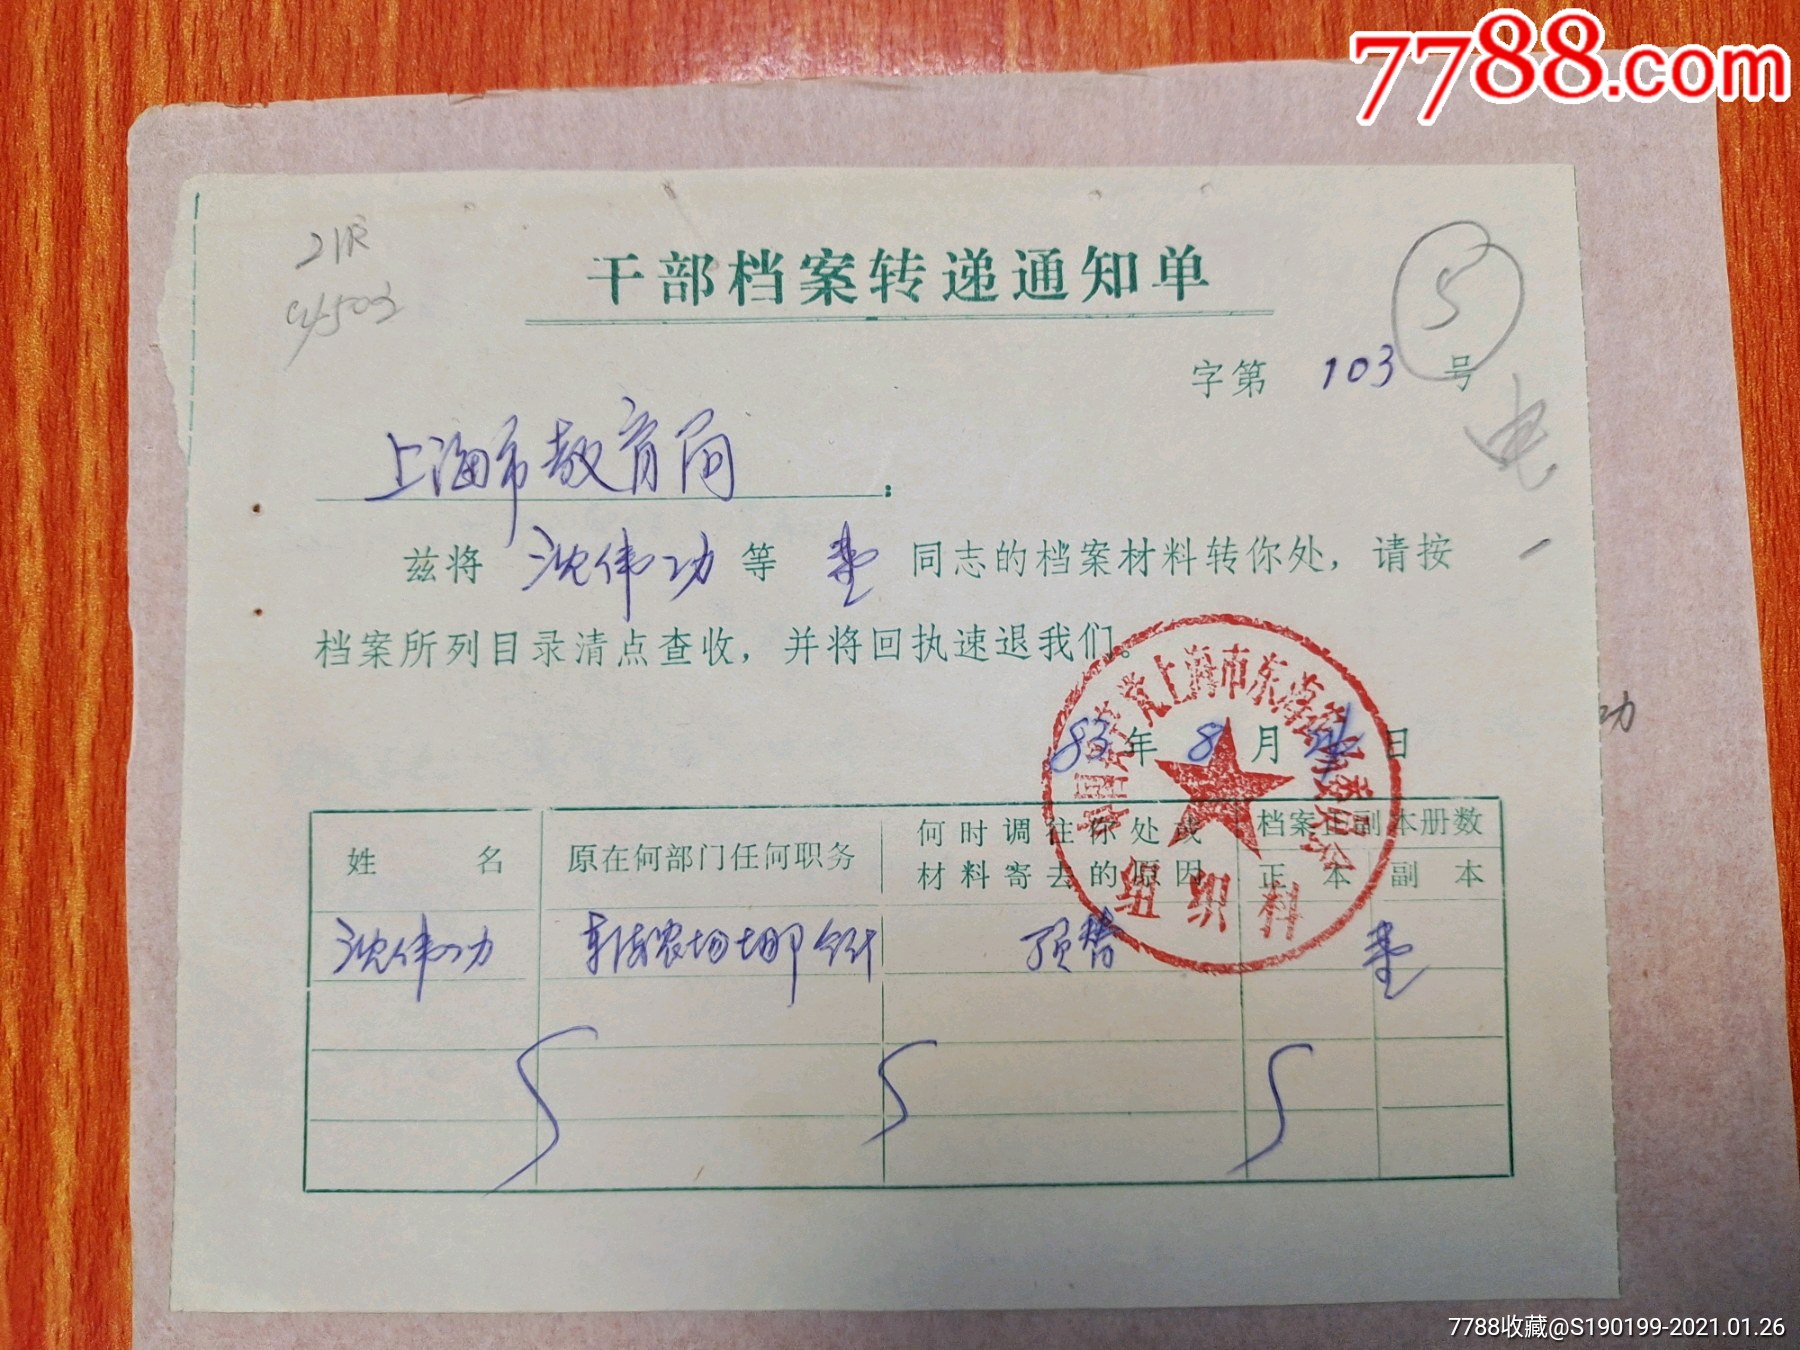 7788.com
干部档案转递通知单
5
字第 103 号
上海市教育局：
兹将 沈伟功 等 壹 同志的档案材料转你处，请按
档案所列目录清点查收，并将回执速退我们。
83年 8 月 日
组织科
姓 名 原在何部门任何职务 何时调往你处或材料寄去的原因 档案正副本册数
正 本 副 本
沈伟功 农场场部会计 顶替 壹
功
7788收藏@S190199-2021.01.26